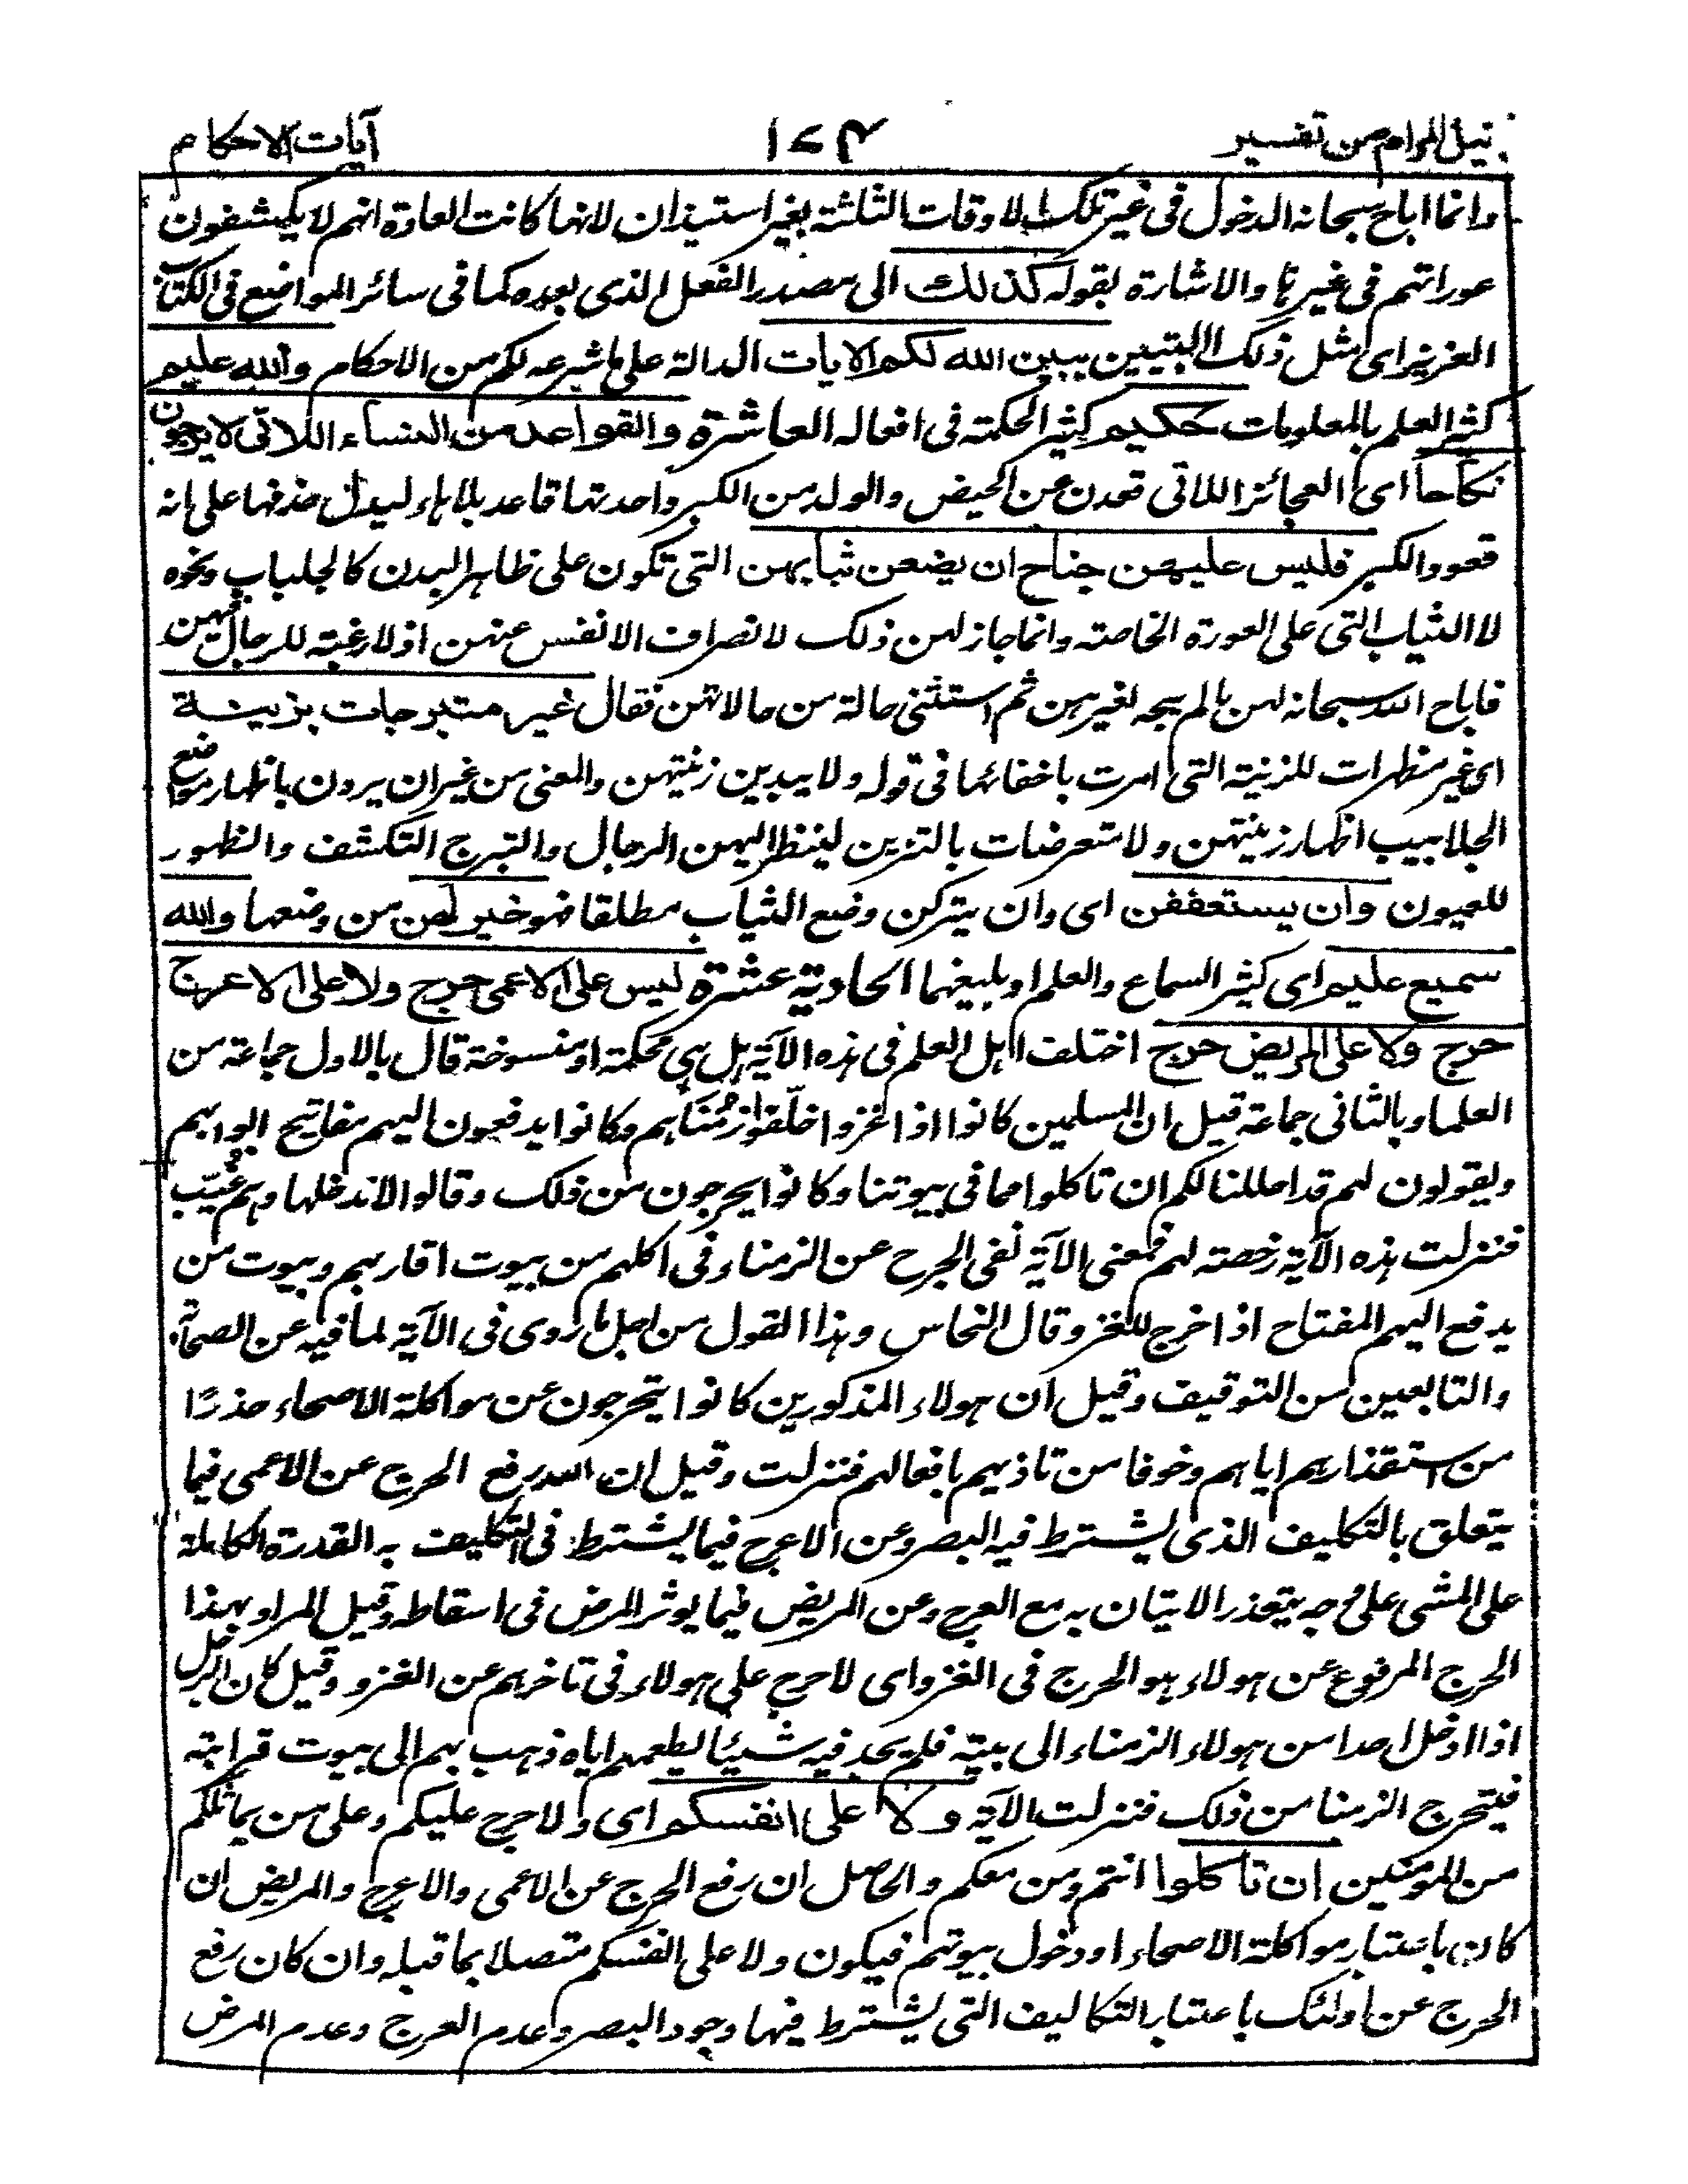 نيل المرام من تفسير
١٧٤
آيات الاحكام
وانما اباح سبحانه الدخول فى غير تلك الاوقات الثلثة بغير استيذان لانها كانت العادة انهم لا يكشفون
عوراتهم فى غيرها والاشارة بقوله كذلك الى مصدر الفعل الذى بعده كما فى سائر المواضع فى الكتاب
العزيز اى مثل ذلك التبيين يبين الله لكم الايات الدالة على ما شرعه لكم من الاحكام والله عليم
كثير العلم بالمعلومات حكيم كثير الحكمة فى افعاله العاشرة والقواعد من النساء اللاتى لا يرجون
نكاحا اى العجائز اللاتى قعدن عن الحيض والولد من الكبر واحدتها قاعد بلا هاء ليدل حذفها على انه
قعود الكبر فليس عليهن جناح ان يضعن ثيابهن التى تكون على ظاهر البدن كالجلباب ونحوه
لا الثياب التى على العورة الخاصة وانما جاز لهن ذلك لانصراف الانفس عنهن اذ لا رغبة للرجال فيهن
فاباح الله سبحانه لهن ما لم يبحه لغيرهن ثم استثنى حالة من حالاتهن فقال غير متبرجات بزينة
اى غير مظهرات للزينة التى امرت باخفائها فى قوله ولا يبدين زينتهن والمعنى من غير ان يردن باظهار مواضع
الجلابيب اظهار زينتهن ولا متعرضات بالتزين لينظر اليهن الرجال والتبرج التكشف والظهور
للعيون وان يستعففن اى وان يتركن وضع الثياب مطلقا فهو خير لهن من وضعها والله
سميع عليم اى كثير السماع والعلم او بليغهما الحادية عشرة ليس على الاعمى حرج ولا على الاعرج
حرج ولا على المريض حرج اختلف اهل العلم فى هذه الآية هل هى محكمة او منسوخة قال بالاول جماعة من
العلماء وبالثانى جماعة قيل ان المسلمين كانوا اذا غزوا خلّفوا زُمَنَاهم وكانوا يدفعون اليهم مفاتيح ابوابهم
ويقولون لهم قد احللنا لكم ان تاكلوا مما فى بيوتنا وكانوا يحرجون من ذلك وقالوا لا ندخلها وهم غُيّب
فنزلت هذه الآية رخصة لهم فمعنى الآية نفى الحرج عن الزمناء فى اكلهم من بيوت اقاربهم وبيوت من
يدفع اليهم المفتاح اذا خرج للغزو قال النحاس وهذا القول من اجل ما روى فى الآية لما فيه عن الصحابة
والتابعين من التوقيف وقيل ان هولاء المذكورين كانوا يتحرجون عن مواكلة الاصحاء حذرًا
من استقذارهم اياهم وخوفا من تاذيهم بافعالهم فنزلت وقيل ان الله رفع الحرج عن الاعمى فيما
يتعلق بالتكليف الذى يشترط فيه البصر وعن الاعرج فيما يشترط فى التكليف به القدرة الكاملة
على المشى على وجه يتعذر الاتيان به مع العرج وعن المريض فيما يوثر المرض فى اسقاطه وقيل المراد بهذا
الحرج المرفوع عن هولاء هو الحرج فى الغزو اى لا حرج على هولاء فى تاخرهم عن الغزو وقيل كان الرجل
اذا ادخل احدا من هولاء الزمناء الى بيته فلم يجد فيه شيئا يطعمهم اياه ذهب بهم الى بيوت قرابته
فيتحرج الزمنا من ذلك فنزلت الآية ولا على انفسكم اى ولا حرج عليكم وعلى من يماثلكم
من المومنين ان تاكلوا انتم ومن معكم والحاصل ان رفع الحرج عن الاعمى والاعرج والمريض ان
كان باعتبار مواكلة الاصحاء او دخول بيوتهم فيكون ولا على انفسكم متصلا بما قبله وان كان رفع
الحرج عن اولئك باعتبار التكاليف التى يشترط فيها وجود البصر وعدم العرج وعدم المرض